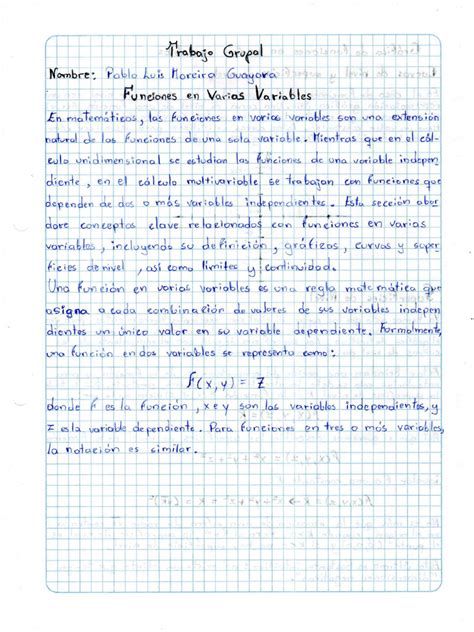 Trabajo Grupal
Nombre: Pablo Luis Moreira Guayara
Funciones en Varias Variables
En matemáticas, las funciones en varias variables son una extensión
natural de las funciones de una sola variable. Mientras que en el cál-
culo unidimensional se estudian las funciones de una variable indepen
diente, en el cálculo multivariable se trabajan con funciones que
dependen de dos o más variables independientes. Esta sección abor
dare conceptos clave relacionados con funciones en varias
variables, incluyendo su definición, gráficas, curvas y super
ficies de nivel, así como límites y continuidad.
Una función en varias variables es una regla matemática que
asigna a cada combinación de valores de sus variables indepen
dientes un único valor en su variable dependiente. Formalmente,
una función en dos variables se representa como:
F(x,y) = Z
donde F es la función, x e y son las variables independientes, y
z es la variable dependiente. Para funciones en tres o más variables,
la notación es similar.